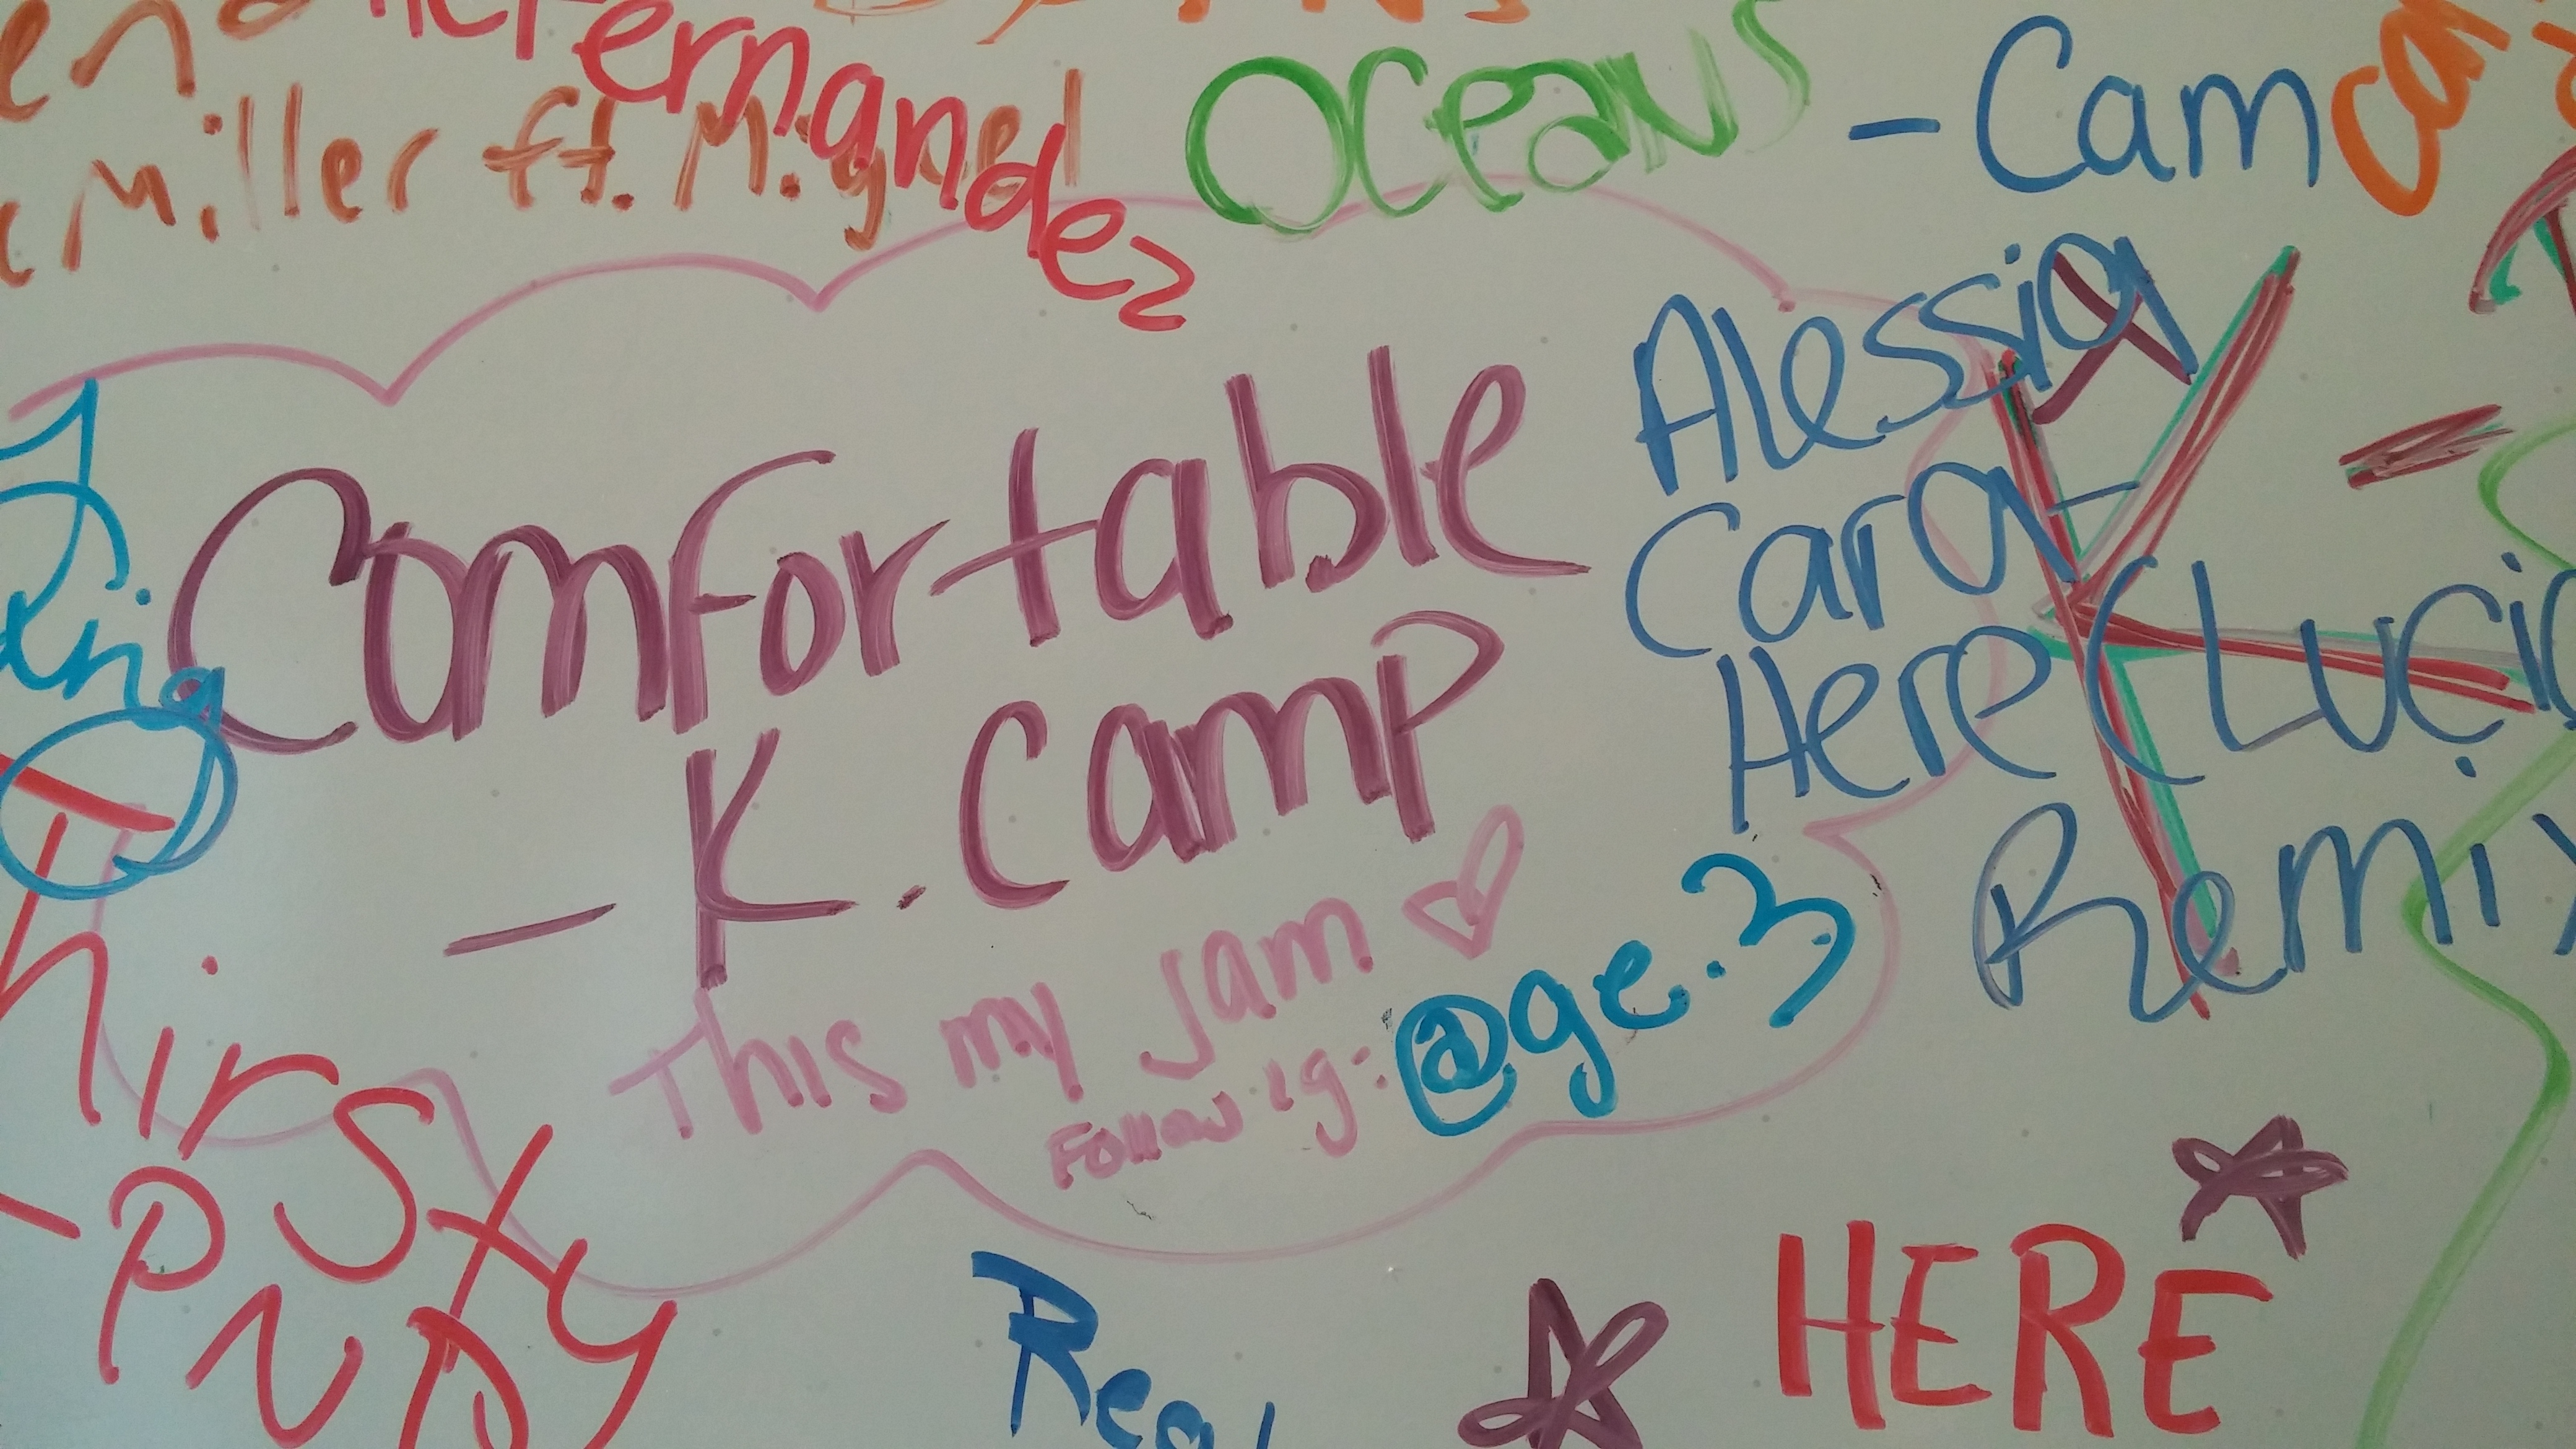 Hernandez
Miller ft. Miguel
Oceans
- Cam
Comfortable
- K. Camp
This my jam
Follow ig: @ge.3
Alessia
Cara -
Here (Luci
Remix
Thirsty
PND
Real
HERE